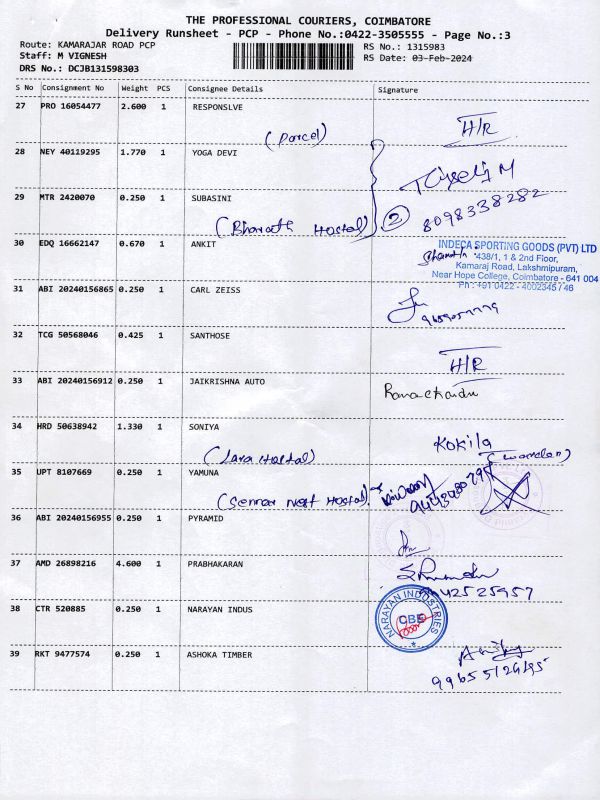 THE PROFESSIONAL COURIERS, COIMBATORE
Delivery Runsheet - PCP - Phone No.:0422-3505555 - Page No.:3
Route: KAMARAJAR ROAD PCP RS No.: 1315983
Staff: M VIGNESH RS Date: 03-Feb-2024
DRS No.: DCJB131598303
S No Consignment No Weight PCS Consignee Details Signature
27 PRO 16054477 2.600 1 RESPONSLVE
(Parcel) H/R
28 NEY 40119295 1.770 1 YOGA DEVI
29 MTR 2420070 0.250 1 SUBASINI
(Bharath Hostal) 2 8098338282
30 EDQ 16662147 0.670 1 ANKIT
INDECA SPORTING GOODS (PVT) LTD
438/1, 1 & 2nd Floor,
Kamaraj Road, Lakshmipuram,
Near Hope College, Coimbatore - 641 004
Ph : +91 0422 - 4002345 / 46
31 ABI 20240156865 0.250 1 CARL ZEISS
32 TCG 50568046 0.425 1 SANTHOSE
H/R
33 ABI 20240156912 0.250 1 JAIKRISHNA AUTO
34 HRD 50638942 1.330 1 SONIYA
(Lara Hostal) Kokila (Warden)
35 UPT 8107669 0.250 1 YAMUNA
36 ABI 20240156955 0.250 1 PYRAMID
37 AMD 26898216 4.600 1 PRABHAKARAN
38 CTR 520885 0.250 1 NARAYAN INDUS
NARAYAN INDUSTRIES
CBE
39 RKT 9477574 0.250 1 ASHOKA TIMBER